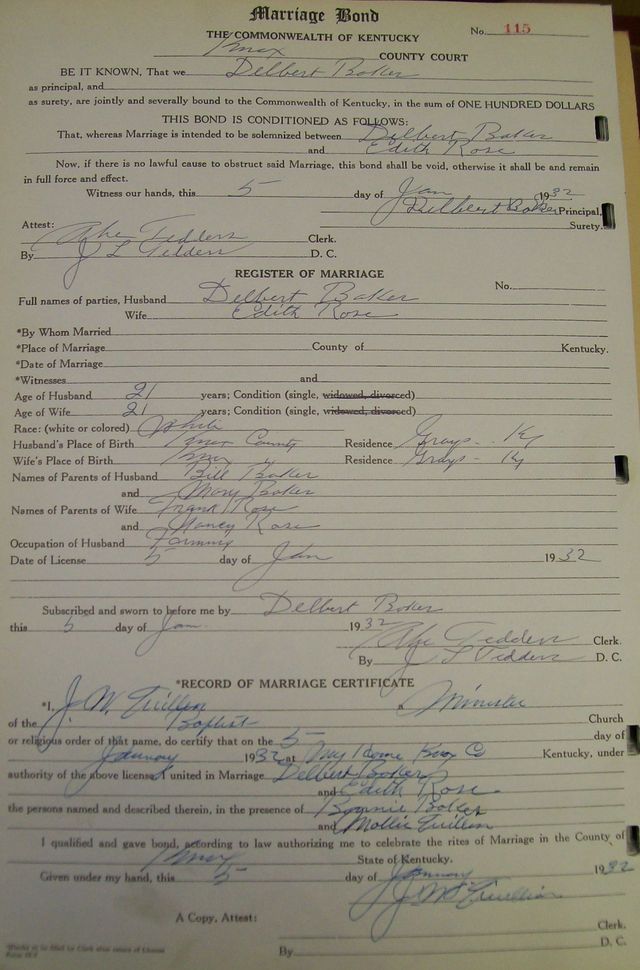 Marriage Bond
THE COMMONWEALTH OF KENTUCKY
No. 115
Knox COUNTY COURT
BE IT KNOWN, That we Delbert Baker
as principal, and
as surety, are jointly and severally bound to the Commonwealth of Kentucky, in the sum of ONE HUNDRED DOLLARS
THIS BOND IS CONDITIONED AS FOLLOWS:
That, whereas Marriage is intended to be solemnized between Delbert Baker
and Edith Rose
Now, if there is no lawful cause to obstruct said Marriage, this bond shall be void, otherwise it shall be and remain
in full force and effect.
Witness our hands, this 5 day of Jan 1932
Delbert Baker Principal,
Surety.
Attest:
Abe Tedders Clerk.
By J L Tedders D. C.
REGISTER OF MARRIAGE
Full names of parties, Husband Delbert Baker No.
Wife Edith Rose
*By Whom Married
*Place of Marriage County of Kentucky.
*Date of Marriage
*Witnesses and
Age of Husband 21 years; Condition (single, widowed, divorced)
Age of Wife 21 years; Condition (single, widowed, divorced)
Race: (white or colored) White
Husband's Place of Birth Knox County Residence Grays - Ky
Wife's Place of Birth Knox " Residence Grays - Ky
Names of Parents of Husband Bill Baker
and Mary Baker
Names of Parents of Wife Frank Rose
and Nancy Rose
Occupation of Husband Farming
Date of License 5 day of Jan 1932
Subscribed and sworn to before me by Delbert Baker
this 5 day of Jan. 1932
Abe Tedders Clerk.
By J L Tedders D. C.
*RECORD OF MARRIAGE CERTIFICATE
*I, J. W. a Minister
of the Baptist Church
or religious order of that name, do certify that on the 5 day of
January 1932 at My Home Knox Co Kentucky, under
authority of the above license, united in Marriage Delbert Baker
and Edith Rose
the persons named and described therein, in the presence of Bonnie Baker
and Mollie
I qualified and gave bond, according to law authorizing me to celebrate the rites of Marriage in the County of
Knox State of Kentucky.
Given under my hand, this 5 day of January 1932
J. W.
A Copy, Attest:
Clerk.
By D. C.